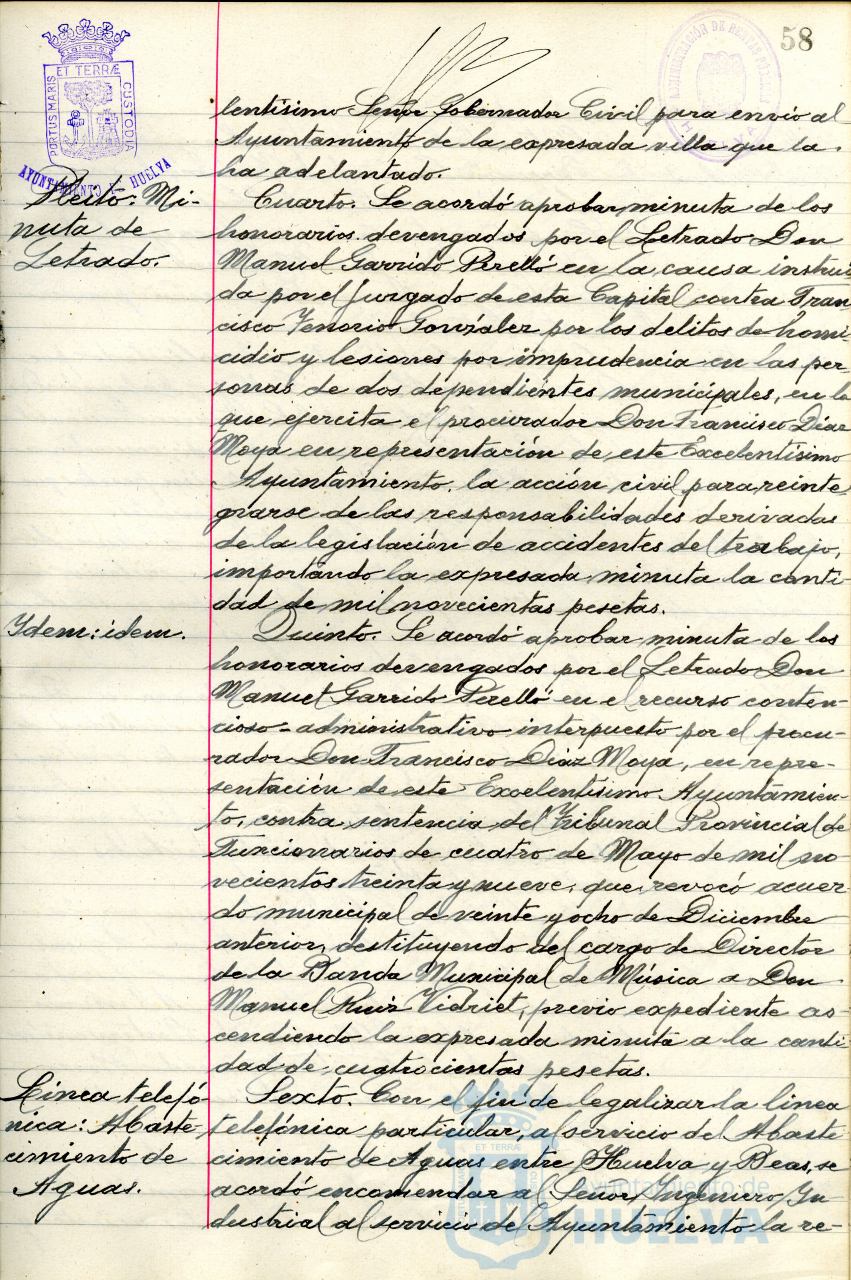 58
ET TERRÆ
PORTUS MARIS
CUSTODIA
AYUNTAMIENTO HUELVA
ADMINISTRACIÓN DE RENTAS
lentísimo Señor Gobernador Civil para envío al
Ayuntamiento de la expresada villa que la
ha adelantado.
Pleito: Mi-
nuta de
Letrado.
Cuarto. Se acordó aprobar minuta de los
honorarios devengados por el Letrado Don
Manuel Garrido Perelló en la causa instrui-
da por el Juzgado de esta Capital contra Fran
cisco Tenorio González por los delitos de homi-
cidio y lesiones por imprudencia en las per-
sonas de dos dependientes municipales, en la
que ejercita el procurador Don Francisco Díaz
Moya en representación de este Excelentísimo
Ayuntamiento la acción civil para reinte
grarse de las responsabilidades derivadas
de la legislación de accidentes del trabajo,
importando la expresada minuta la canti-
dad de mil novecientas pesetas.
Ydem: idem.
Quinto. Se acordó aprobar minuta de los
honorarios devengados por el Letrado Don
Manuel Garrido Perelló en el recurso conten-
cioso-administrativo interpuesto por el procu-
rador Don Francisco Díaz Moya, en repre-
sentación de este Excelentísimo Ayuntamien-
to, contra sentencia del Tribunal Provincial de
Funcionarios de cuatro de Mayo de mil no-
vecientos treinta y nueve, que revocó acuer-
do municipal de veinte y ocho de Diciembre
anterior, destituyendo del cargo de Director
de la Banda Municipal de Música a Don
Manuel Ruiz Vidriet, previo expediente as-
cendiendo la expresada minuta a la canti-
dad de cuatrocientas pesetas.
Línea telefó-
nica: Abaste-
cimiento de
Aguas.
Sexto. Con el fin de legalizar la linea
telefónica particular, al servicio del Abaste
cimiento de Aguas entre Huelva y Beas, se
acordó encomendar al Señor Ingeniero In
dustrial al servicio del Ayuntamiento la re-
ET TERRÆ
Ayuntamiento de
HUELVA